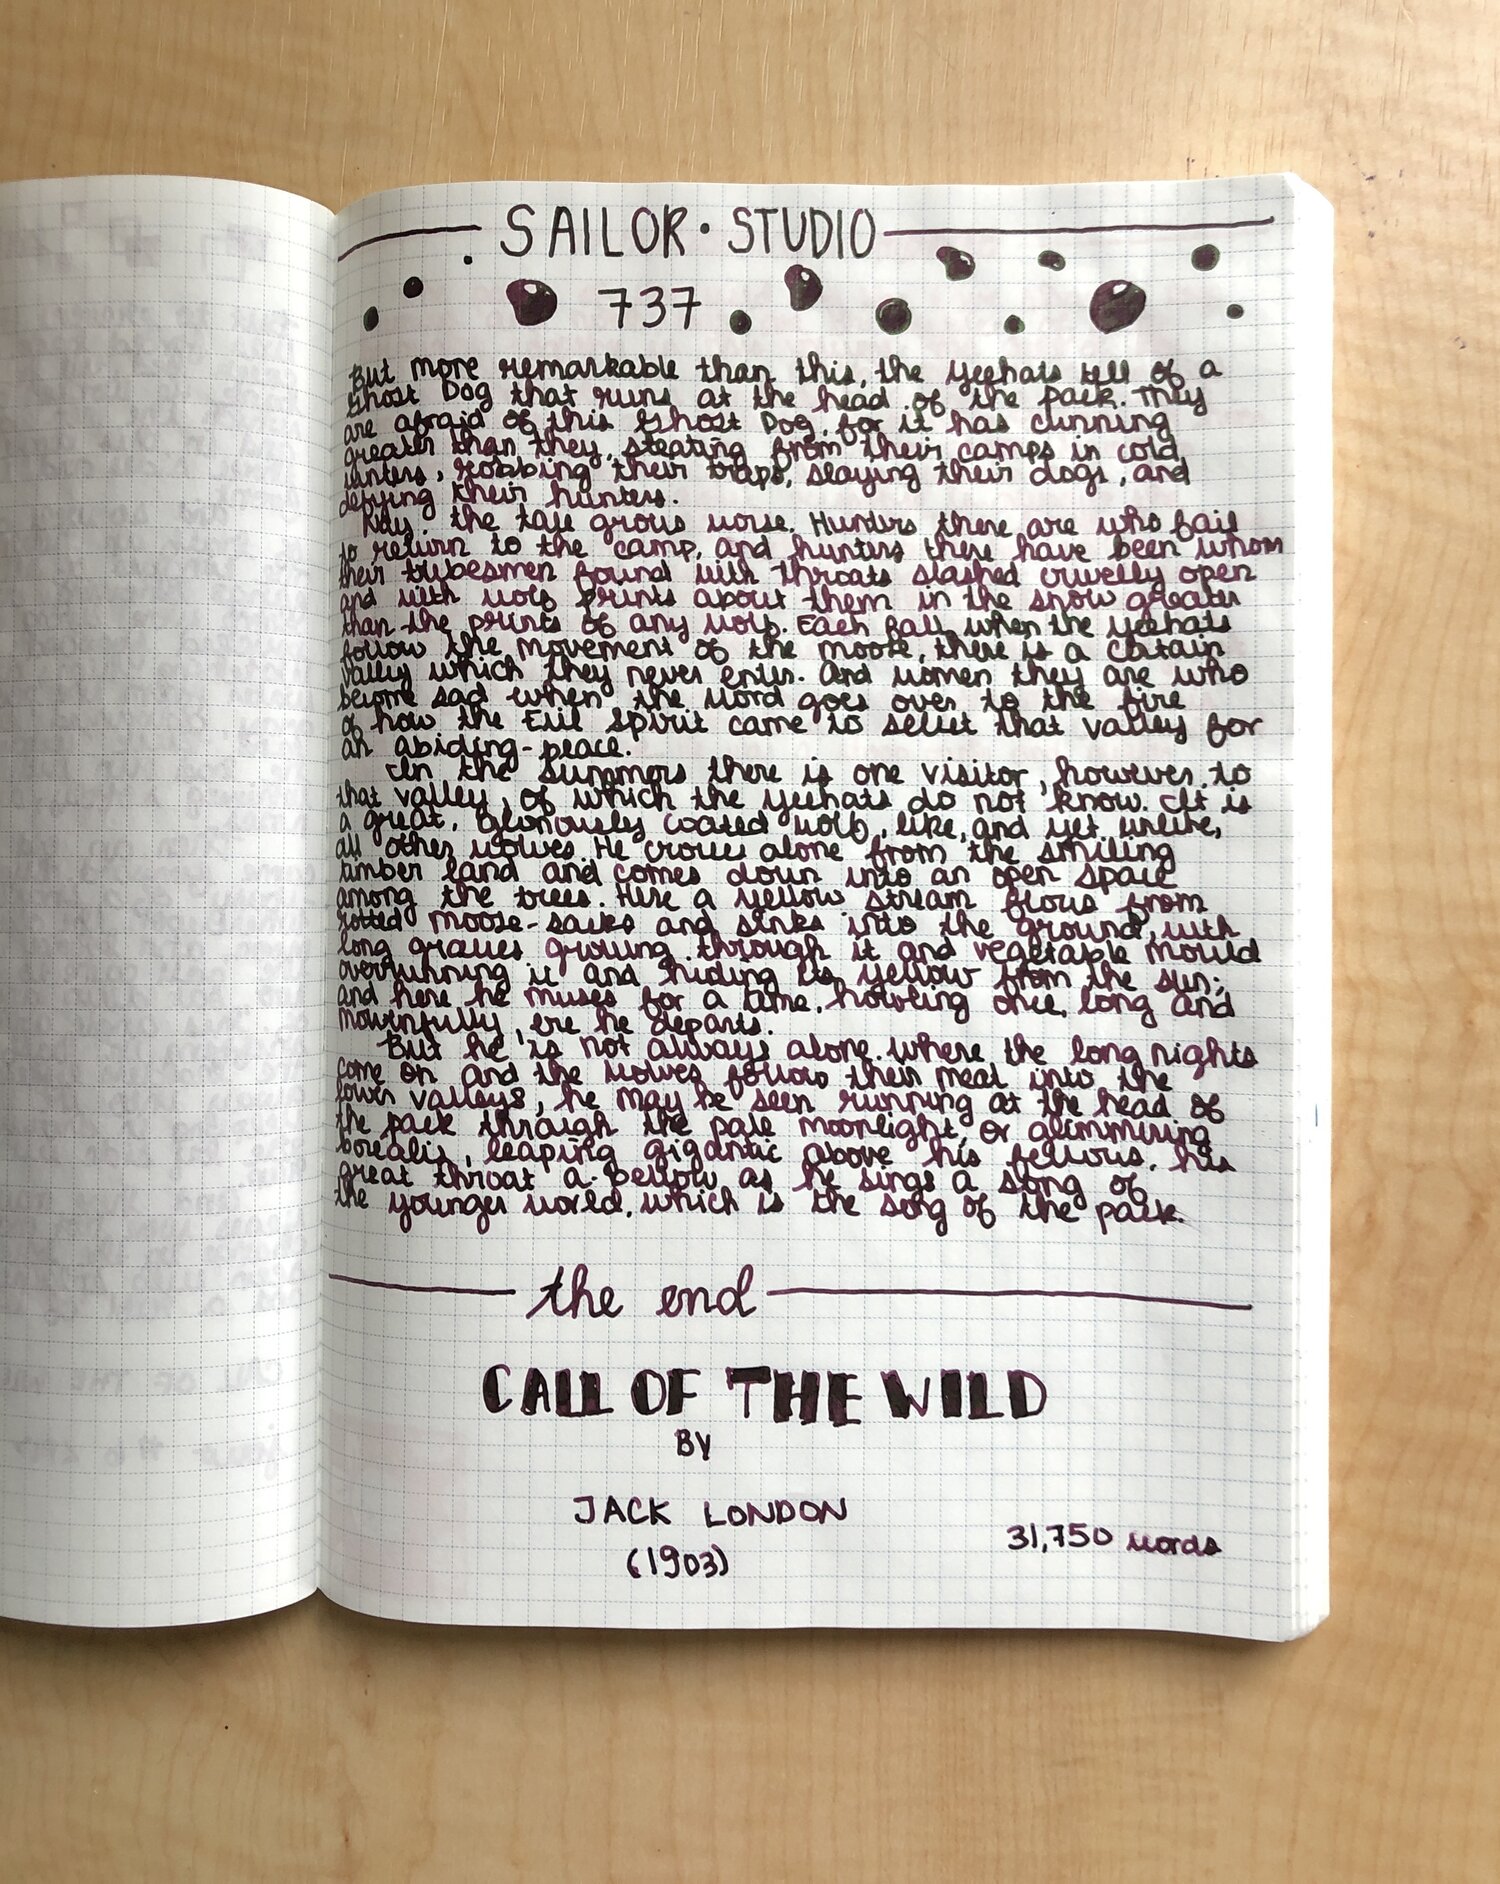 SAILOR · STUDIO
737
But more remarkable than this, the Yeehats tell of a
Ghost Dog that runs at the head of the pack. They
are afraid of this Ghost Dog, for it has cunning
greater than they, stealing from their camps in cold
winters, robbing their traps, slaying their dogs, and
defying their hunters.
Nay, the tale grows worse. Hunters there are who fail
to return to the camp, and hunters there have been whom
their tribesmen found with throats slashed cruelly open
and with wolf prints about them in the snow greater
than the prints of any wolf. Each fall, when the Yeehats
follow the movement of the moose, there is a certain
valley which they never enter. And women they are who
become sad when the word goes over to the fire
of how the Evil Spirit came to select that valley for
an abiding-peace.
In the summers there is one visitor, however, to
that valley, of which the Yeehats do not know. It is
a great, gloriously coated wolf, like, and yet unlike,
all other wolves. He crosses alone from the smiling
timber land and comes down into an open space
among the trees. Here a yellow stream flows from
rotted moose-sacks and sinks into the ground, with
long grasses growing through it and vegetable mould
overrunning it and hiding its yellow from the sun;
and here he muses for a time, howling once, long and
mournfully, ere he departs.
But he is not always alone. Where the long nights
come on and the wolves follow their meat into the
lower valleys, he may be seen running at the head of
the pack through the pale moonlight, or glimmering
borealis, leaping gigantic above his fellows, his
great throat a-bellow as he sings a song of
the younger world, which is the song of the pack.
the end
CALL OF THE WILD
BY
JACK LONDON
(1903)
31,750 words